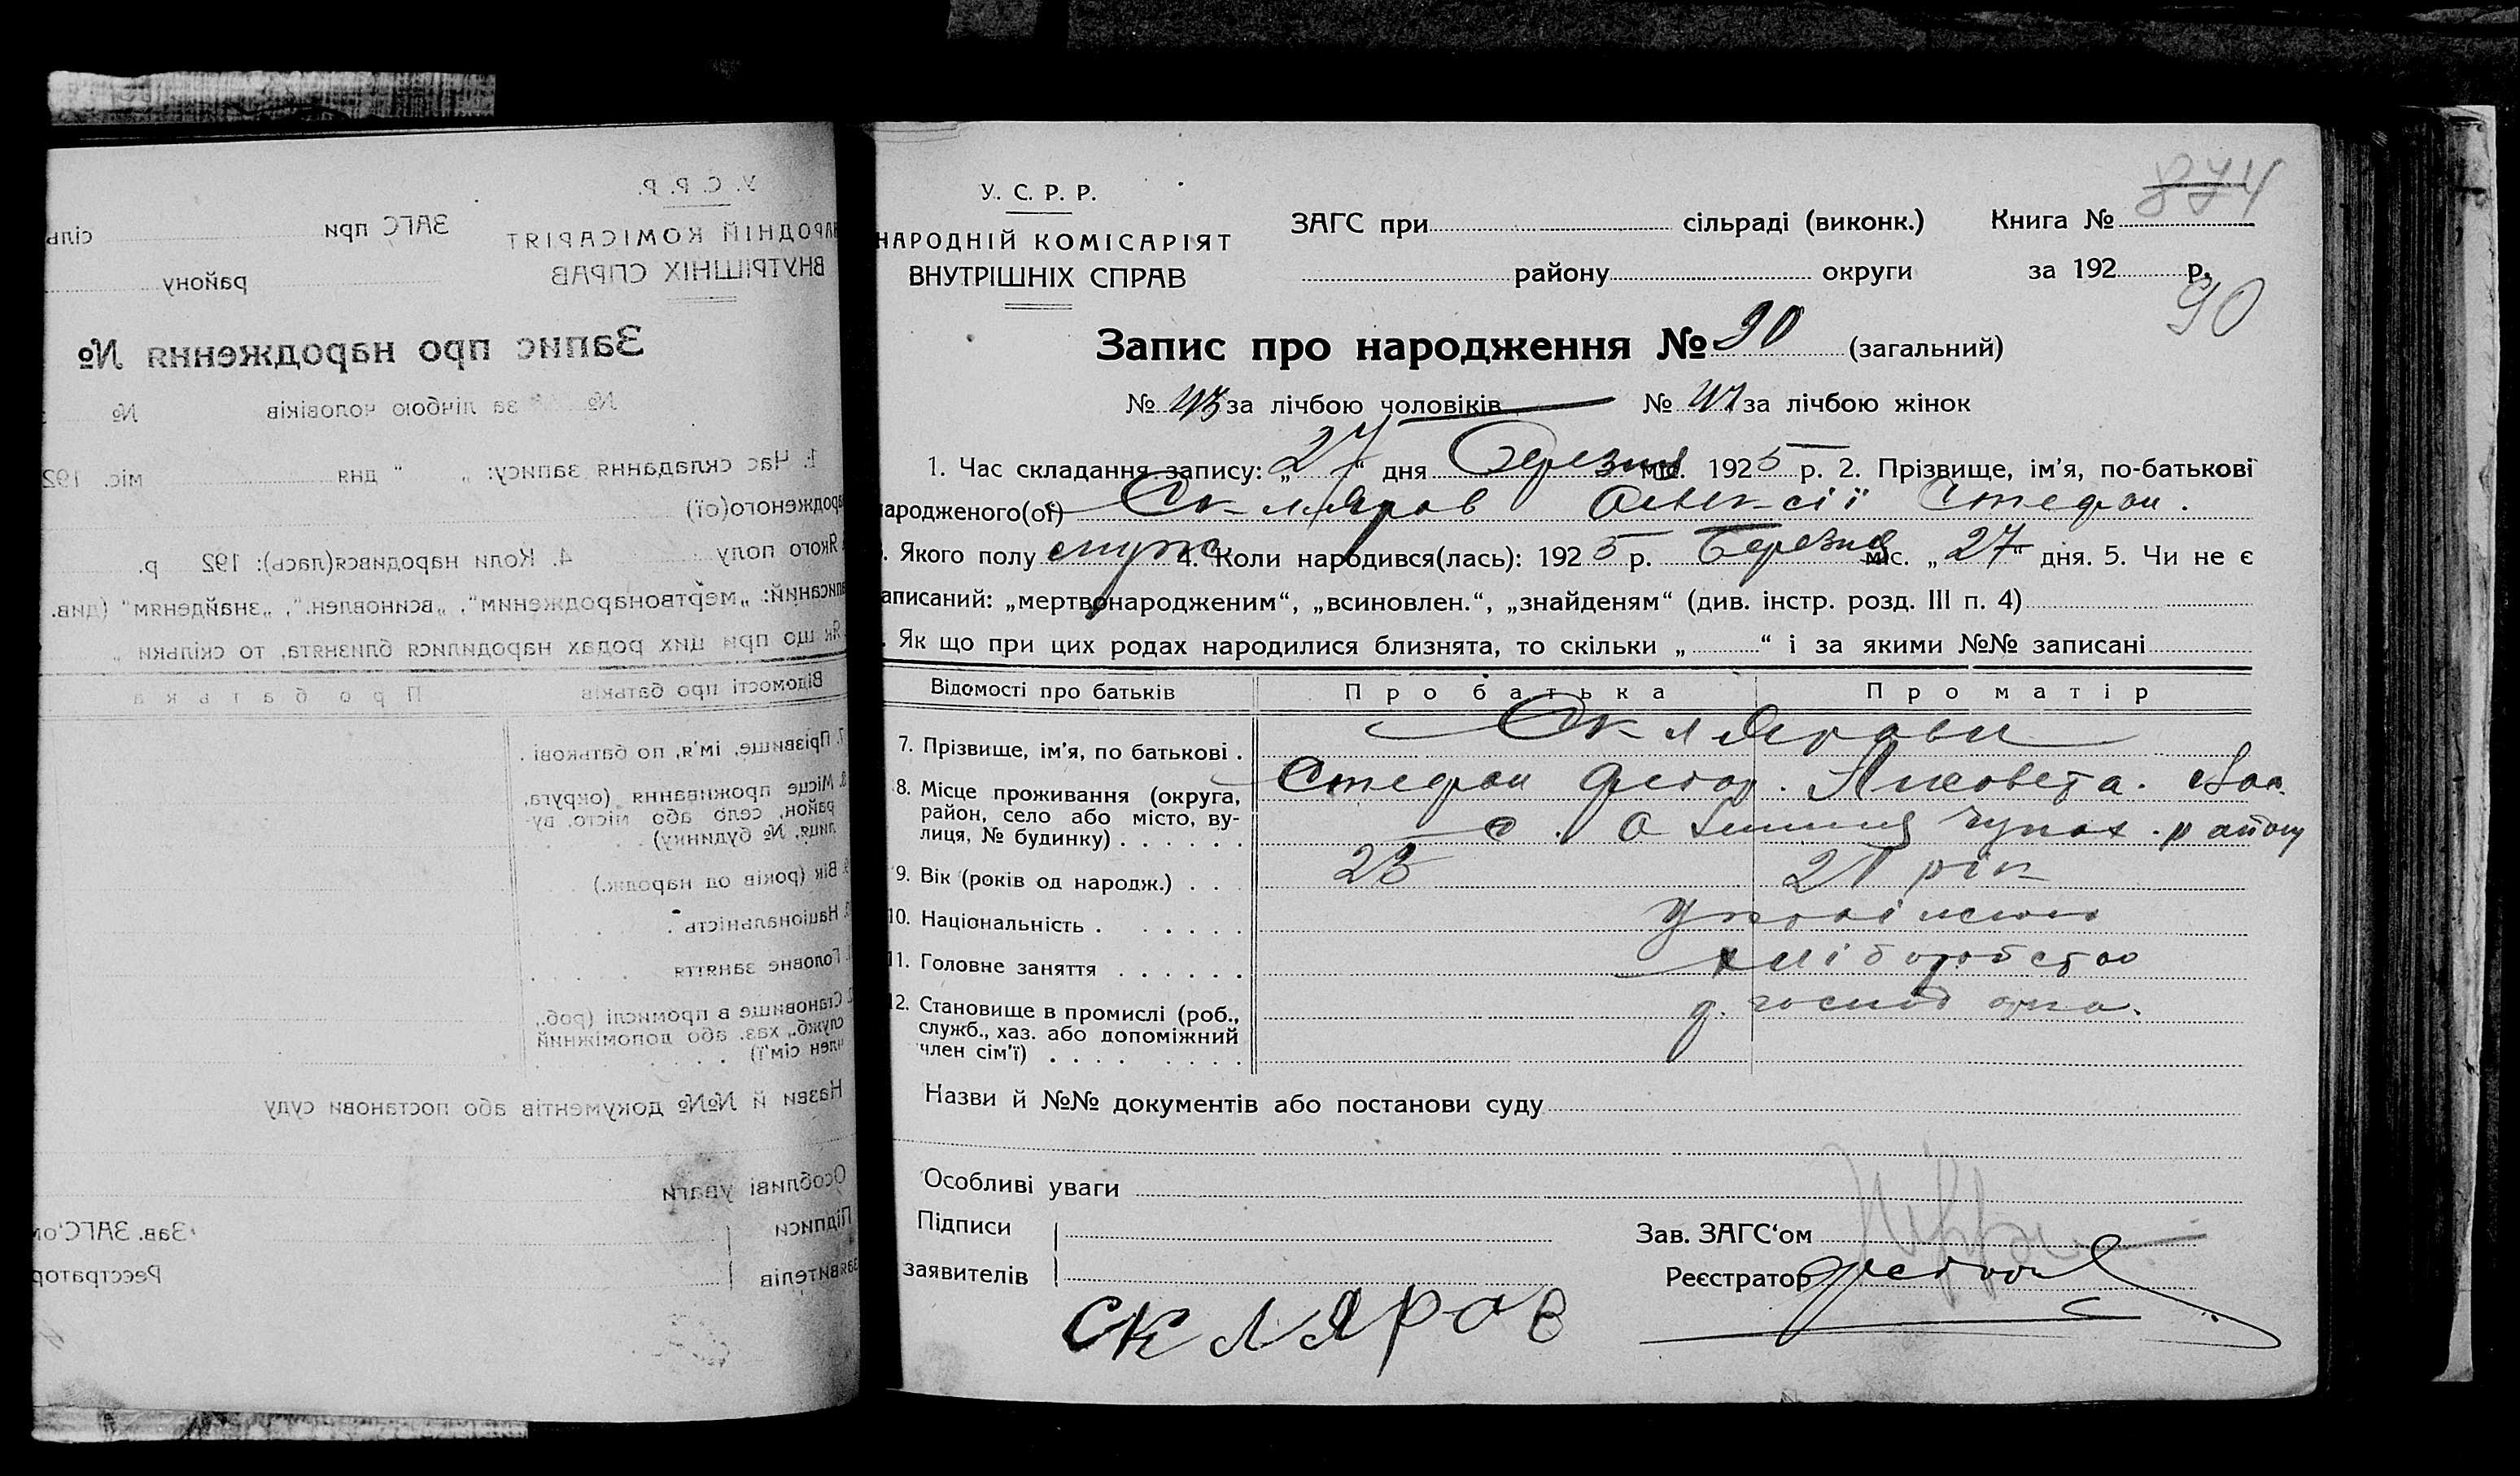 У. С. Р. Р.
НАРОДНІЙ КОМІСАРІЯТ
ВНУТРІШНІХ СПРАВ
ЗАГС при сільраді (виконк.) Книга №
874
району округи за 192 р.
90
Запис про народження № 90 (загальний)
№ 43 за лічбою чоловіків № 47 за лічбою жінок
1. Час складання запису: „27“ дня Березня міс. 1925 р. 2. Прізвище, ім'я, по-батькові
народженого(ої) Скляров Олексій Стефан.
Якого полу муж. 4. Коли народився(лась): 1925 р. Березня міс. „27“ дня. 5. Чи не є
записаний: „мертвонародженим“, „всиновлен.“, „знайденям“ (див. інстр. розд. III п. 4)
Як що при цих родах народилися близнята, то скільки „ “ і за якими №№ записані
Відомості про батьків Про батька Про матір
7. Прізвище, ім'я, по батькові . Склярови
Стефан Федор. Лисовета.
8. Місце проживання (округа,
район, село або місто, ву-
лиця, № будинку) . . . . . . с. району
9. Вік (років од народж.) . . . 23 21 рік
10. Національність . . . . . .
11. Головне заняття . . . . . . хліборобство
12. Становище в промислі (роб.,
служб., хаз. або допоміжний
член сім'ї) . . . . . . . .
Назви й №№ документів або постанови суду
Особливі уваги
Підписи
заявителів
Скляров
Зав. ЗАГС'ом
Реєстратор
У. С. Р. Р.
НАРОДНІЙ КОМІСАРІЯТ
ВНУТРІШНІХ СПРАВ
ЗАГС при сіль
району
Запис про народження №
№ за лічбою чоловіків №
1. Час складання запису: „ “ дня міс. 192
народженого(ої)
Якого полу 4. Коли народився(лась): 192 р.
записаний: „мертвонародженим“, „всиновлен.“, „знайденям“ (див.
Як що при цих родах народилися близнята, то скільки „
Відомості про батьків Про батька
7. Прізвище, ім'я, по батькові .
Місце проживання (округа,
район, село або місто, ву-
лиця, № будинку) . . .
Вік (років од народж.)
Національність .
Головне заняття
Становище в промислі (роб.,
служб., хаз. або допоміжний
член сім'ї)
Назви й №№ документів або постанови суду
Особливі уваги
Підписи
заявителів
Зав. ЗАГС'ом
Реєстратор